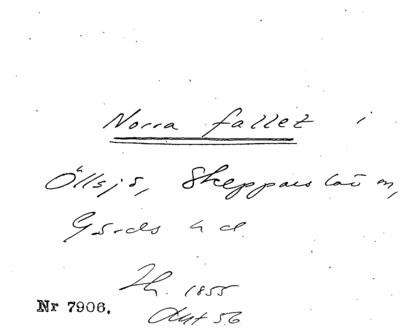 Norra fallet i
Öllsjö, Skepparslöv sn,
Gärds hd
1855
56
Nr 7906.